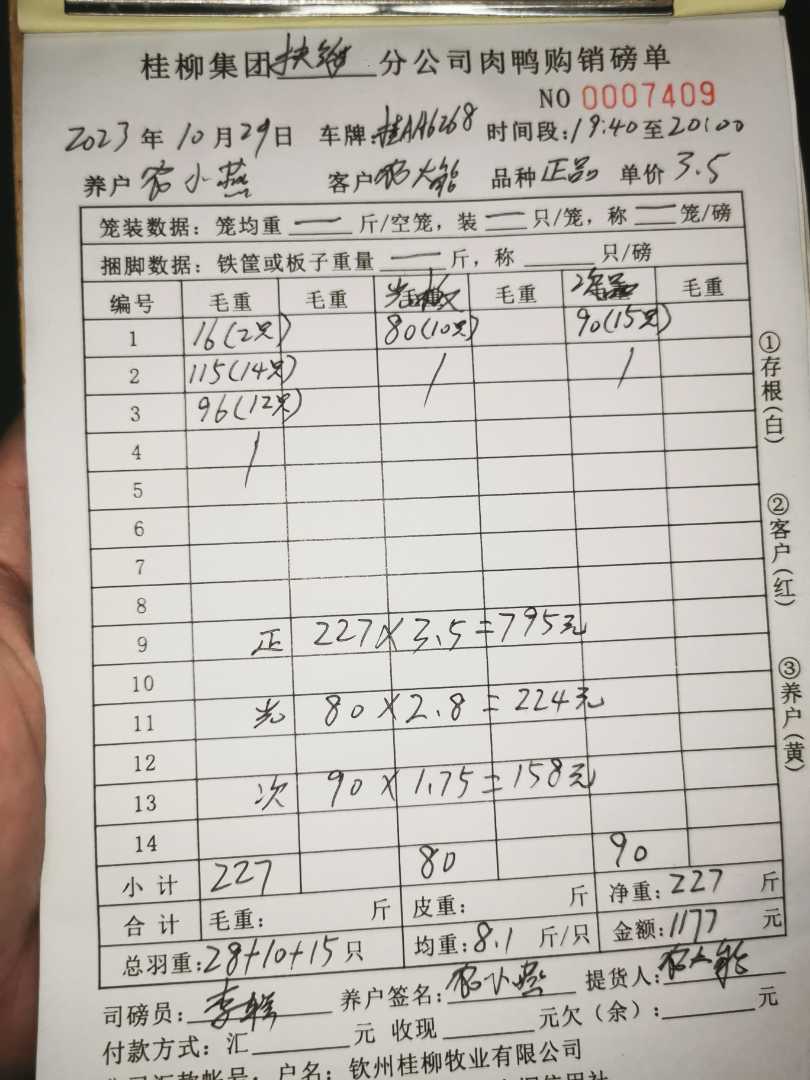 桂柳集团扶绥分公司肉鸭购销磅单
NO 0007409
2023年10月29日 车牌:桂AA6268 时间段:19:40至20:00
养户 农小燕 客户 农大能 品种 正品 单价 3.5
笼装数据：笼均重 — 斤/空笼，装 — 只/笼，称 — 笼/磅
捆脚数据：铁筐或板子重量 — 斤，称 只/磅
编号 毛重 毛重 光 毛重 次品 毛重
1 16(2只) 80(10只) 90(15只)
2 115(14只)
3 96(12只)
4
5
6
7
8
9 正 227×3.5=795元
10
11 光 80×2.8=224元
12
13 次 90×1.75=158元
14
小计 227 80 90
合计 毛重: 斤 皮重: 斤 净重:227 斤
总羽重:28+10+15只 均重:8.1 斤/只 金额:1177 元
司磅员: 李 养户签名:农小燕 提货人:农大能
付款方式：汇 元 收现 元欠（余）: 元
户名：钦州桂柳牧业有限公司
①存根(白)
②客户(红)
③养户(黄)